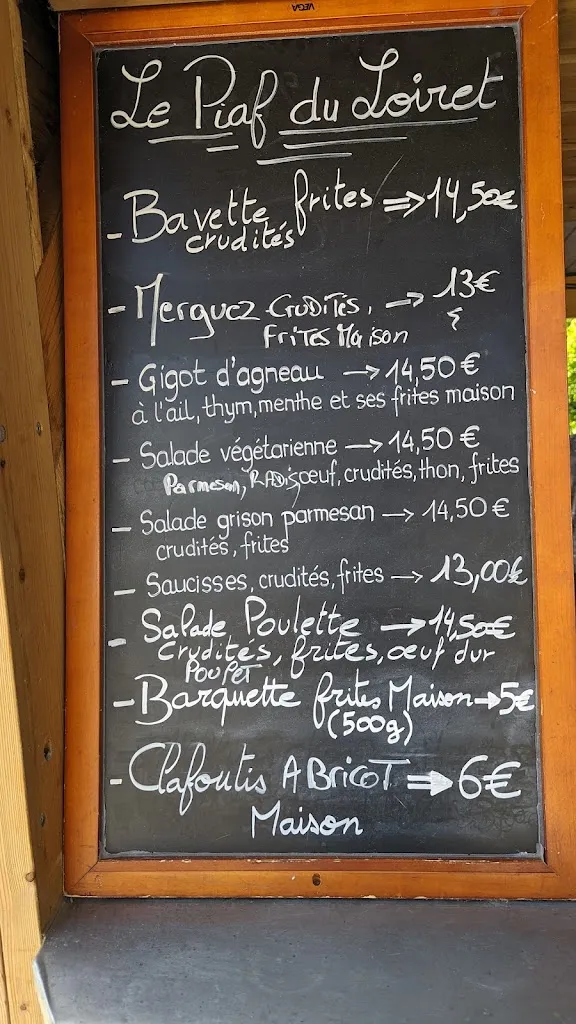 VEGA
Le Piaf du Loiret
- Bavette frites => 14,50€
crudités
- Merguez CRUDITÉS, -> 13€
FRITES Maison
- Gigot d'agneau -> 14,50 €
à l'ail, thym, menthe et ses frites maison
- Salade végétarienne -> 14,50 €
Parmesan, RADIS, oeuf, crudités, thon, frites
- Salade grison parmesan -> 14,50 €
crudités, frites
- Saucisses, crudités, frites -> 13,00€
- Salade Poulette -> 14,50€
Crudités, frites, oeuf dur
POUPET
- Barquette frites Maison -> 5€
(500g)
- Clafoutis ABRICOT => 6€
Maison